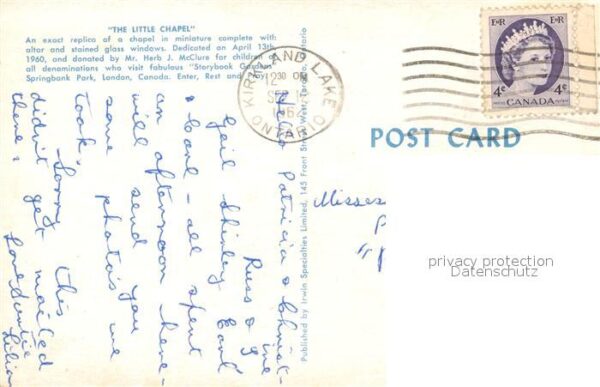 "THE LITTLE CHAPEL"
An exact replica of a chapel in miniature complete with
altar and stained glass windows. Dedicated on April 13th,
1960, and donated by Mr. Herb J. McClure for children of
all denominations who visit fabulous "Storybook Gardens"
Springbank Park, London, Canada. Enter, Rest and
KIRKLAND LAKE
12 30 PM
ONTARIO
E II R
E II R
4¢
4¢
CANADA
POST CARD
Published by Irwin Specialties Limited, 145 Front Street West, Toronto, Ontario
Hello Patricia & Christ-
ine
Russ & I
Gail Shirley Earl
& Carl - all spent
an afternoon here -
will send you
some photo's we
took.
Sorry this
didn't get mailed
there.
Love Auntie
Lilian
Misses
P
privacy protection
Datenschutz